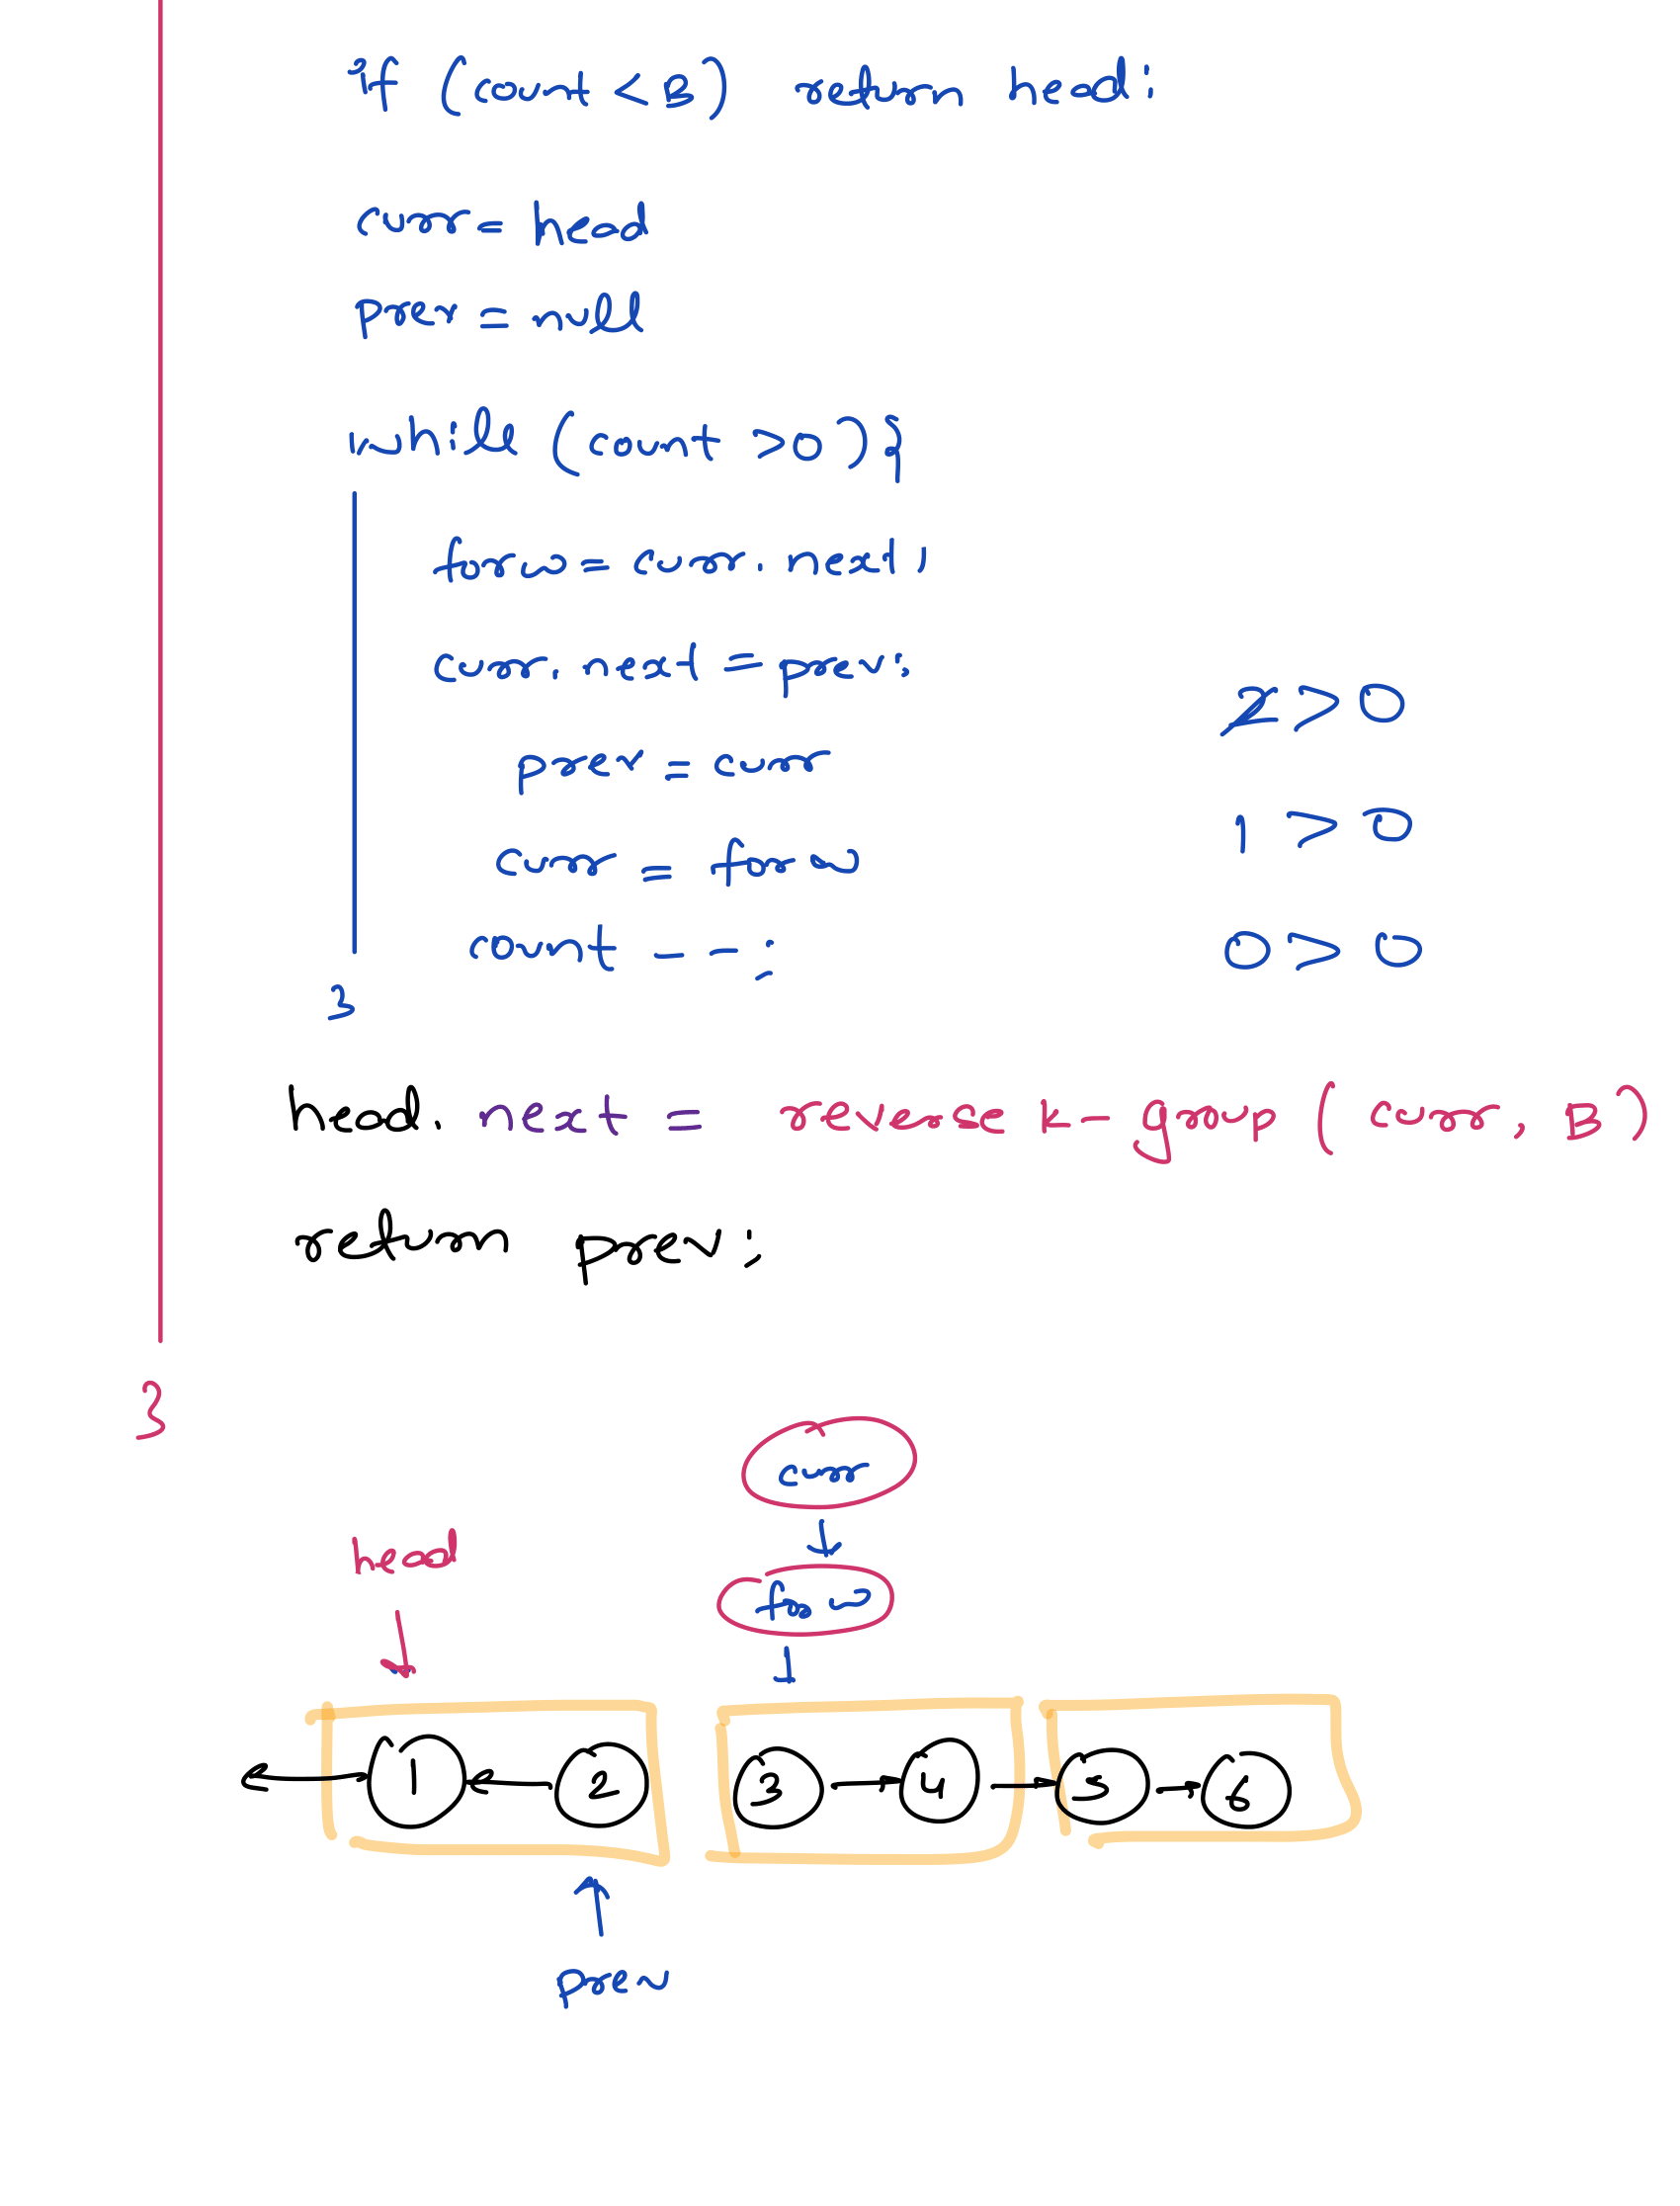 if (count < B) return head;
curr = head
prev = null
while (count > 0) {
forw = curr. next;
curr. next = prev;
prev = curr
2 > 0
curr = forw
1 > 0
count - - ;
0 > 0
}
head. next = reverse k - group ( curr, B )
return prev;
}
curr
head
forw
1 2 3 4 5 6
prev